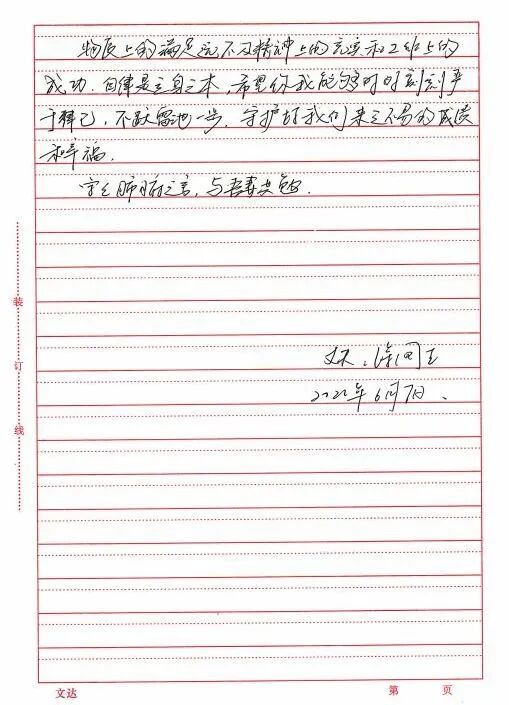 物质上的满足远不及精神上的充实和工作上的
成功。自律是立身之本,希望你我能够时时刻刻严
于律己,不越雷池一步,守护好我们来之不易的成绩
和幸福。
字字肺腑之言,与吾妻共勉。
丈夫:
2022年6月7日.
装
订
线
文达
第 页